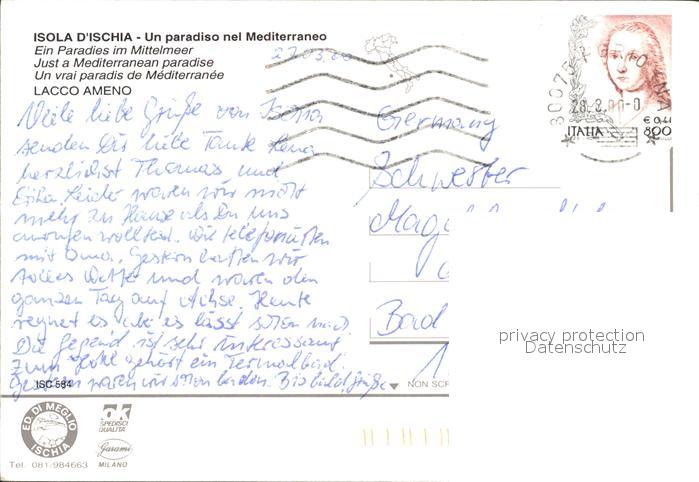 ISOLA D'ISCHIA - Un paradiso nel Mediterraneo
Ein Paradies im Mittelmeer
Just a Mediterranean paradise
Un vrai paradis de Méditerranée
LACCO AMENO
27.03.00
Viele liebe Grüße von Ischia
senden Dir liebe Tante Lena
herzlichst Thomas und
Erika. Leider waren wir nicht
mehr zu Hause als Du uns
anrufen wolltest. Wir telefonierten
mit Oma. Gestern hatten wir
tolles Wetter und waren den
ganzen Tag auf Achse. Heute
regnet es aber es lässt schon nach.
Die Gegend ist sehr interessant
Zum Hotel gehört ein Termalbad.
Gestern waren wir schon baden. Bis bald, Grüße
ISC 584
ED. DI MEGLIO
ISCHIA
Tel. 081/984663
ok
SPEDISCI
QUALITA'
Garami
MILANO
NON SCR
Germany
Schwester
Mag
Bad
1
80075
28.3.00-0
ITALIA
€ 0,41
800
privacy protection
Datenschutz